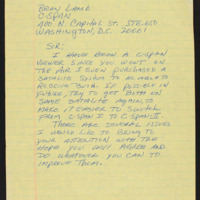 BRIAN LAMB
C-SPAN
400 N. CAPITOL ST. STE. 650
WASHINGTON, D.C. 20001
SIR:
I HAVE BEEN A C-SPAN
VIEWER SINCE YOU WENT ON
THE AIR. I EVEN PURCHASED A
SATALITE SYSTEM TO BE ABLE TO
RECEIVE BOTH. IF POSSIBLE IN
FUTURE, TRY TO GET BOTH ON
SAME SATALITE AGAIN, TO
MAKE IT EASIER TO SWITCH
FROM C-SPAN I TO C-SPAN II.
THERE ARE SEVERAL ISSUES
I WOULD LIKE TO BRING TO
YOUR ATTENTION WITH THE
HOPE YOU WILL AGREE AND
DO WHATEVER YOU CAN TO
IMPROVE THEM.